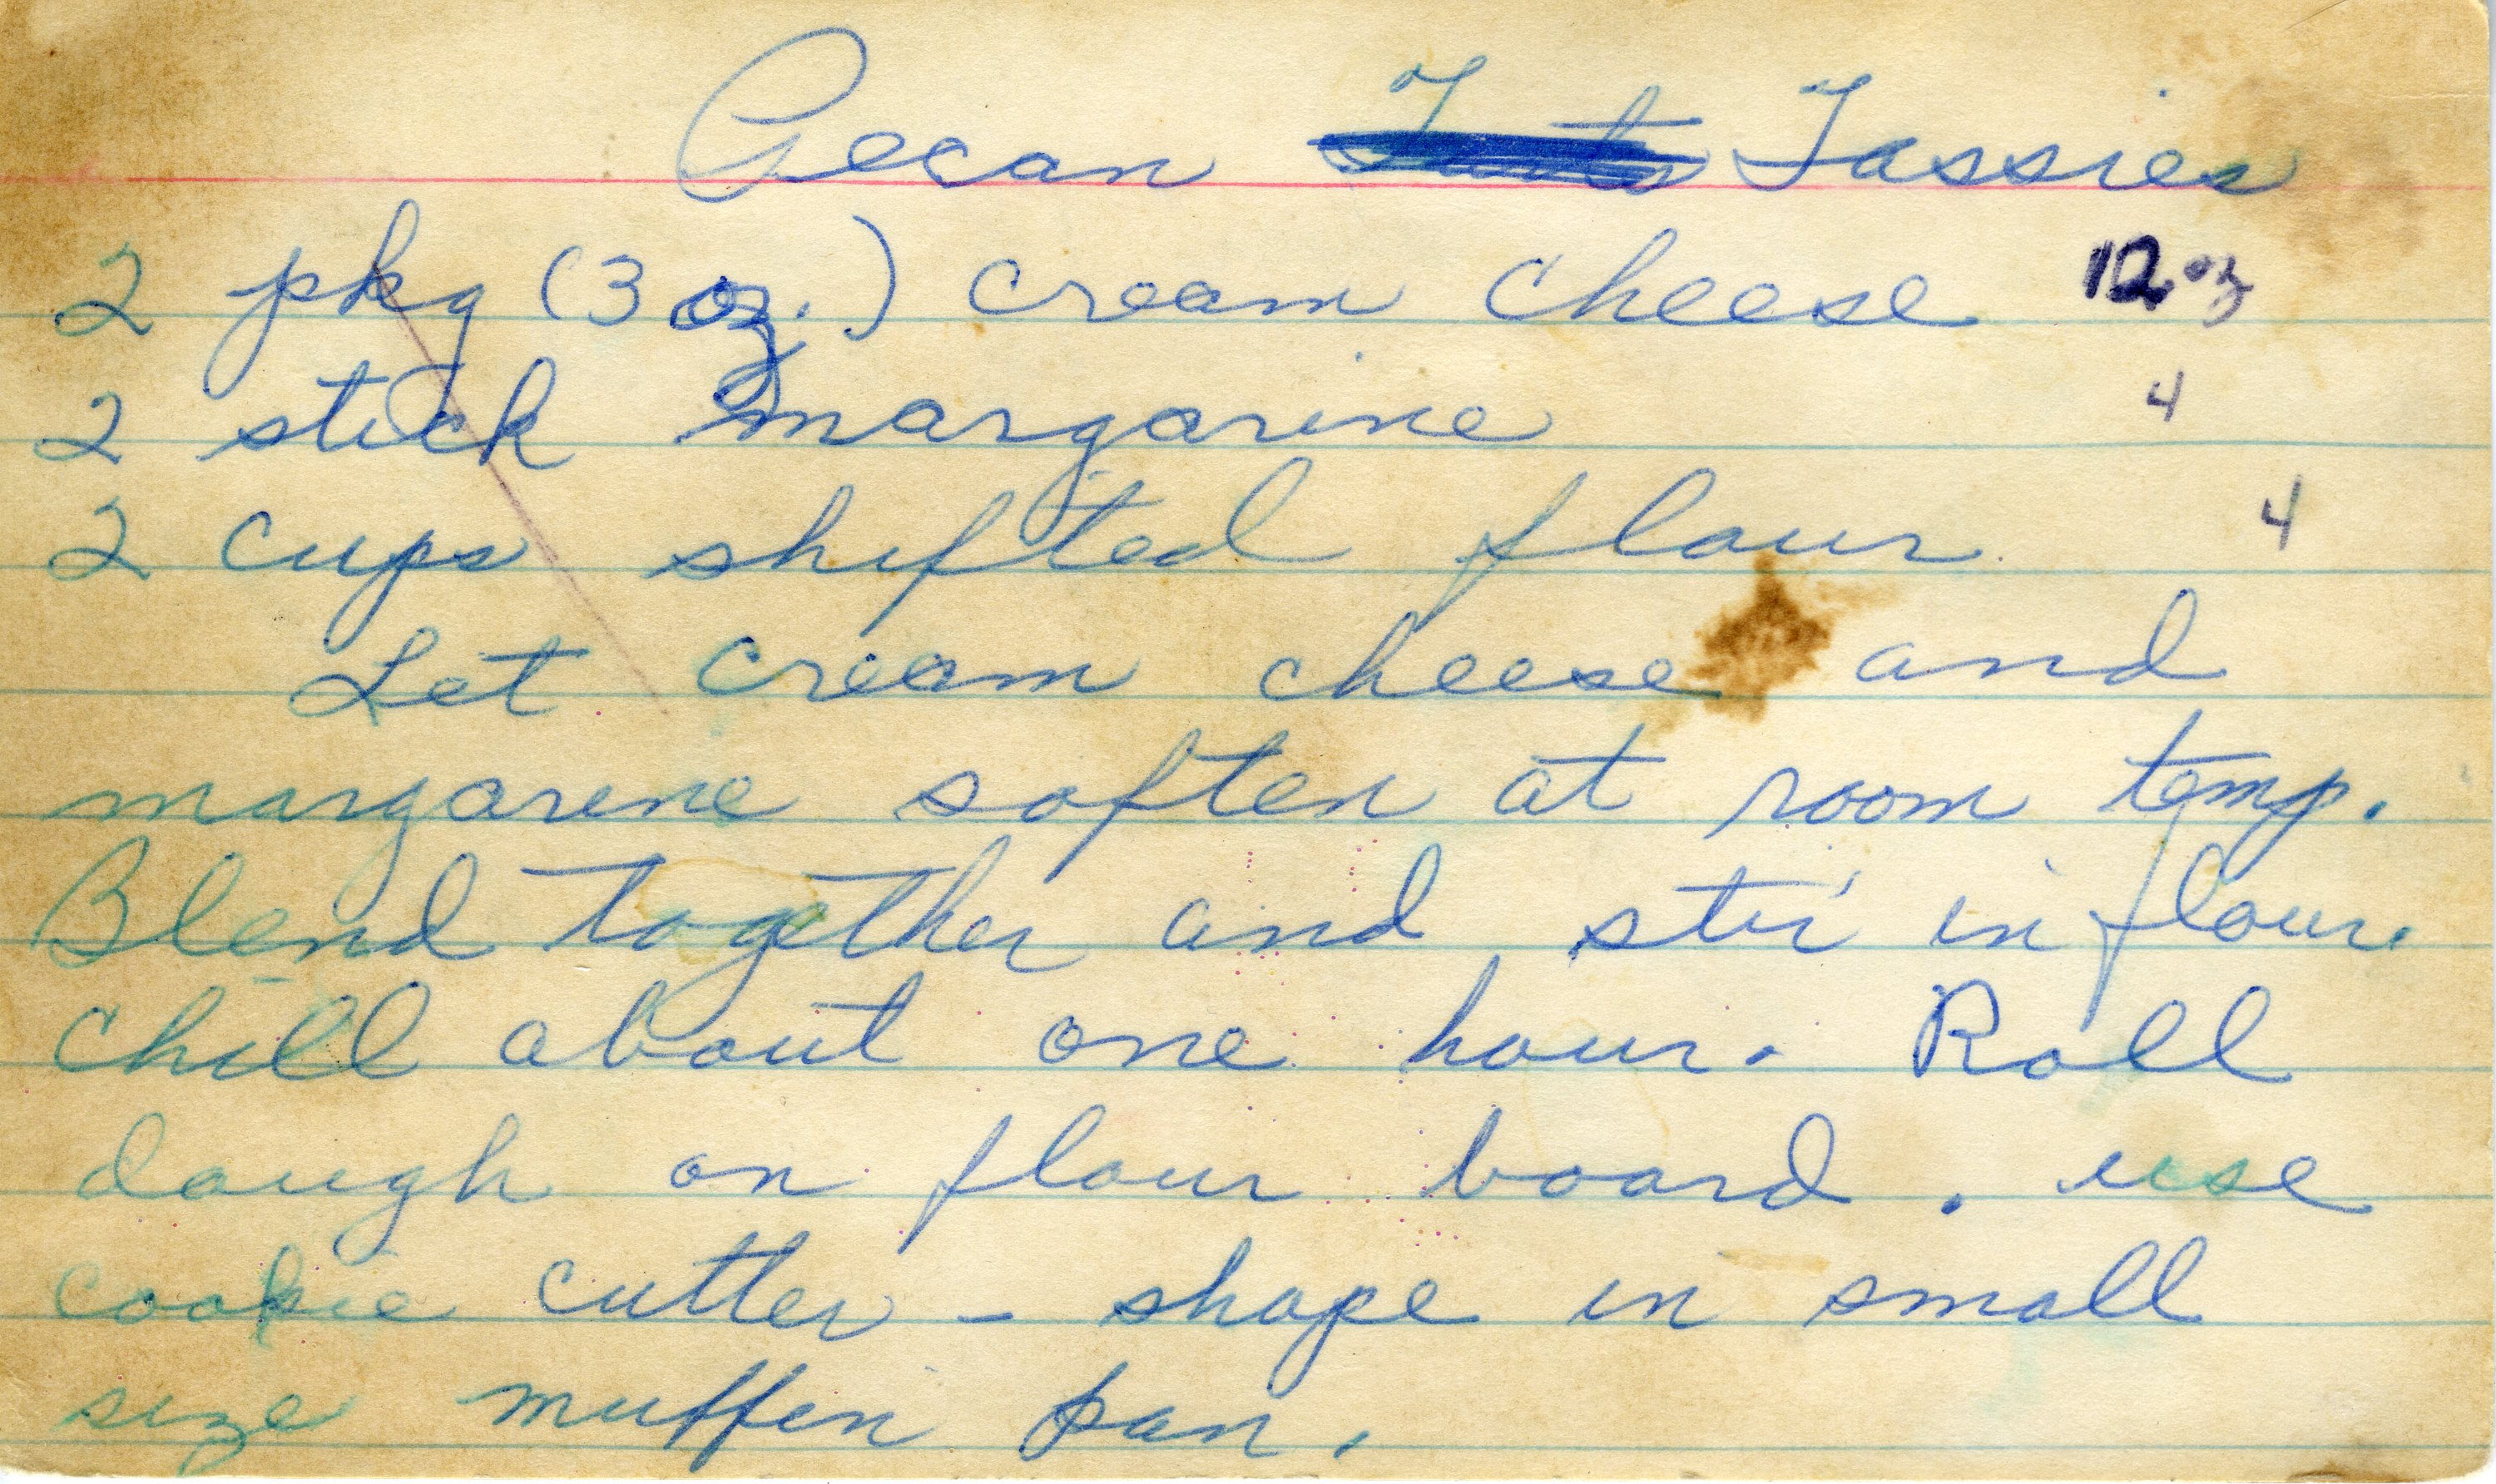 Pecan Tarts Tassies
2 pkg (3 oz.) cream cheese 12 oz
2 stick margarine 4
2 cups shifted flour 4
Let cream cheese and
margarine soften at room temp.
Blend together and stir in flour.
Chill about one hour. Roll
dough on flour board. use
cookie cutter - shape in small
size muffin pan.